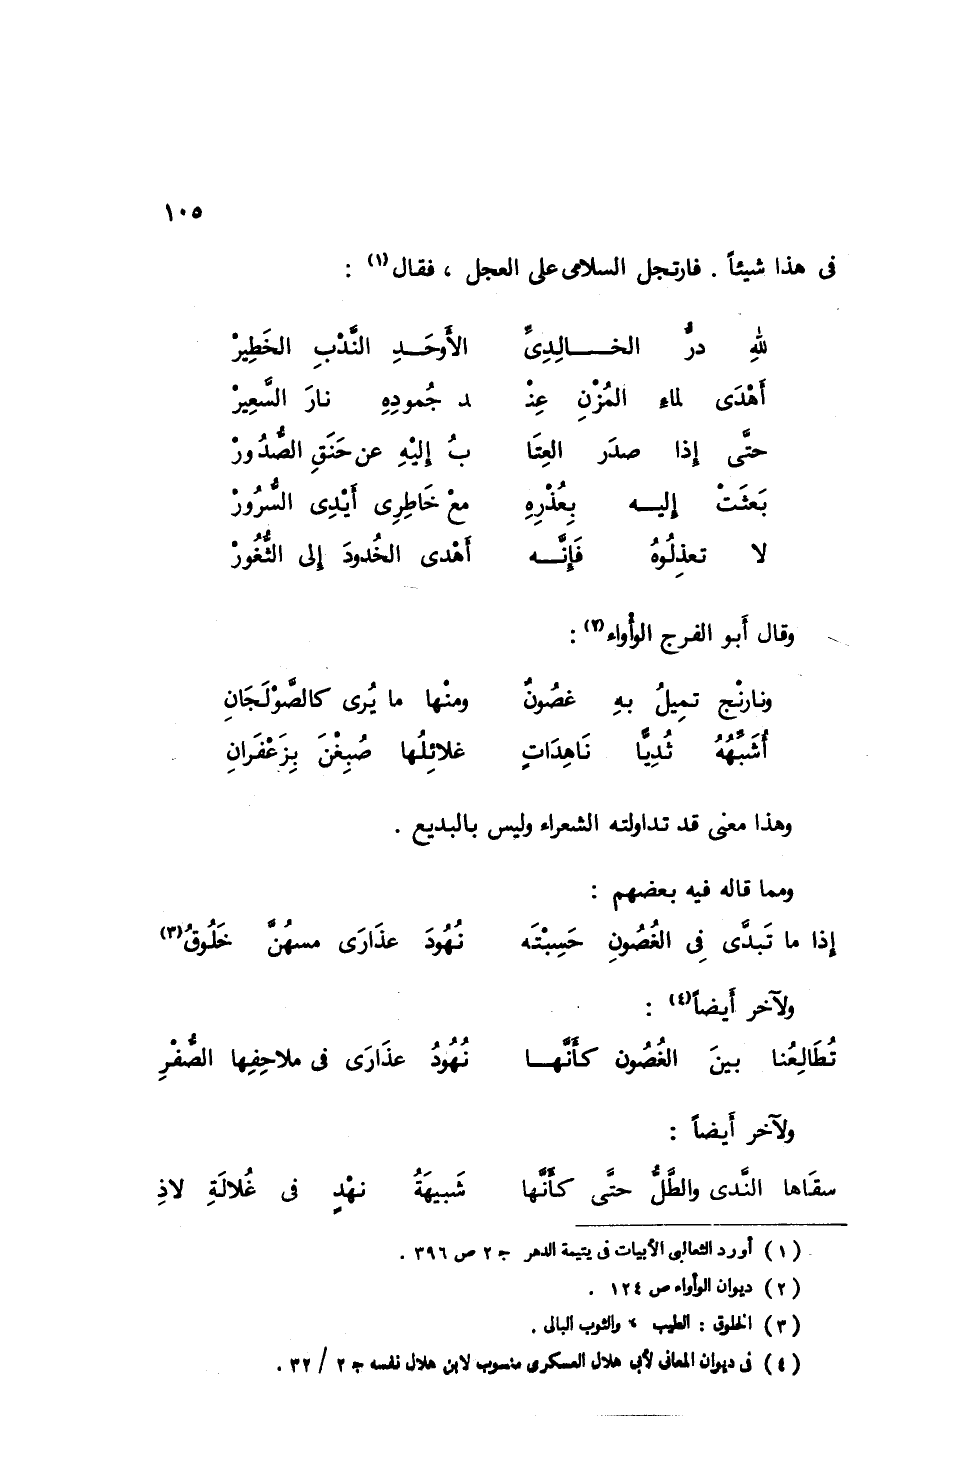 ١٠٥
فى هذا شيئاً . فارتجل السلامى على العجل ، فقال (١) :
للهِ درُّ الخـــالِدِىِّ الأَوحَـدِ النَّدْبِ الخَطِيرْ
أَهْدَى لماء المُزْنِ عِنْـ ـد جُمودِهِ نارَ السَّعِيرْ
حتَّى إذا صدَر العِتَا بُ إِليْهِ عن حَنَقِ الصُّدُورْ
بَعثَتْ إليـــه بِعُذْرِهِ معْ خَاطِرِى أَيْدِى السُّرُورْ
لا تعذِلُوهُ فَإِنَّـــه أَهْدى الخُدودَ إلى الثُّغُورْ
وقال أَبو الفرج الوأْواء (٢) :
ونارنْج تمِيلُ بهِ غصُونٌ ومنْها ما يُرى كالصَّوْلَجَانِ
أُشَبِّهُهُ ثُدِيًّا نَاهِدَاتٍ غلائِلُها صُبِغْنَ بِزَعْفَرانِ
وهذا معنى قد تداولته الشعراء وليس بالبديع .
ومما قاله فيه بعضهم :
إذا ما تَبدَّى فِى الغُصُونِ حَسِبْتَه نُهُودَ عذَارَى مسهُنَّ خَلُوقُ (٣)
ولآخر أَيضاً (٤) :
تُطَالِعُنا بينَ الغُصُون كأَنَّهـــا نُهُودُ عذَارَى فى ملاحِفِها الصُّفْرِ
ولآخر أَيضاً :
سقَاها النَّدى والطَّلُّ حتَّى كأَنَّها شَبِيهَةُ نهْدٍ فى غُلالَةِ لاذِ
(١) أورد الثعالبى الأبيات فى يتيمة الدهر جـ ٢ ص ٣٩٦ .
(٢) ديوان الوأواء ص ١٢٤ .
(٣) الخلوق : الطيب ، والثوب البالى .
(٤) فى ديوان المعانى لأبى هلال العسكرى منسوب لابن هلال نفسه جـ ٢ / ٣٢ .